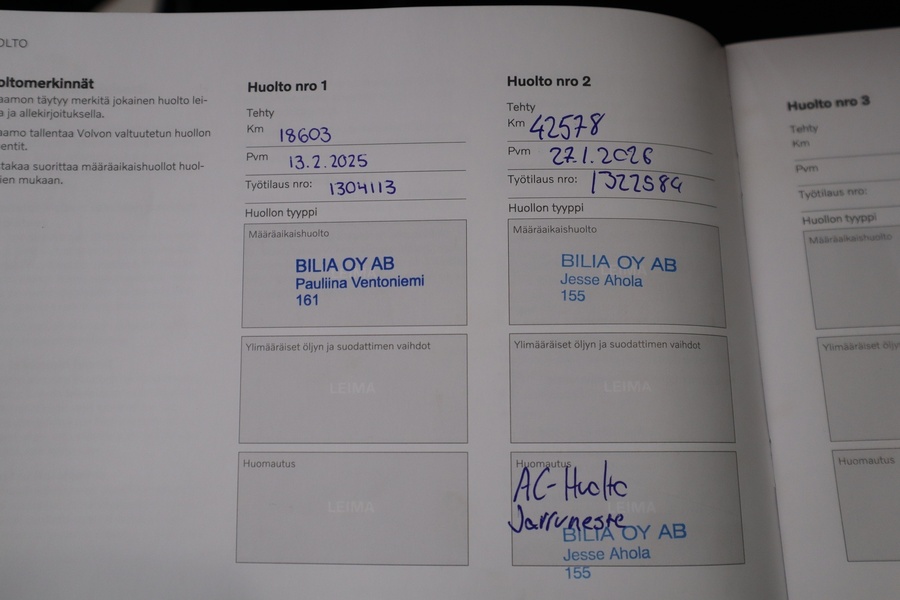 OLTO
oltomerkinnät
aamon täytyy merkitä jokainen huolto lei-
a ja allekirjoituksella.
aamo tallentaa Volvon valtuutetun huollon
entit.
takaa suorittaa määräaikaishuollot huol-
ien mukaan.
Huolto nro 1
Tehty
Km 18603
Pvm 13.2.2025
Työtilaus nro: 1304113
Huollon tyyppi
Määräaikaishuolto
BILIA OY AB
Pauliina Ventoniemi
161
Ylimääräiset öljyn ja suodattimen vaihdot
LEIMA
Huomautus
LEIMA
Huolto nro 2
Tehty
Km 42578
Pvm 27.1.2026
Työtilaus nro: 1322584
Huollon tyyppi
Määräaikaishuolto
BILIA OY AB
Jesse Ahola
155
Ylimääräiset öljyn ja suodattimen vaihdot
LEIMA
Huomautus
AC-Huolto
LEIMA
Jarruneste
BILIA OY AB
Jesse Ahola
155
Huolto nro 3
Tehty
Km
Pvm
Työtilaus nro:
Huollon tyyppi
Määräaikaishuolto
Ylimääräiset öljy
Huomautus